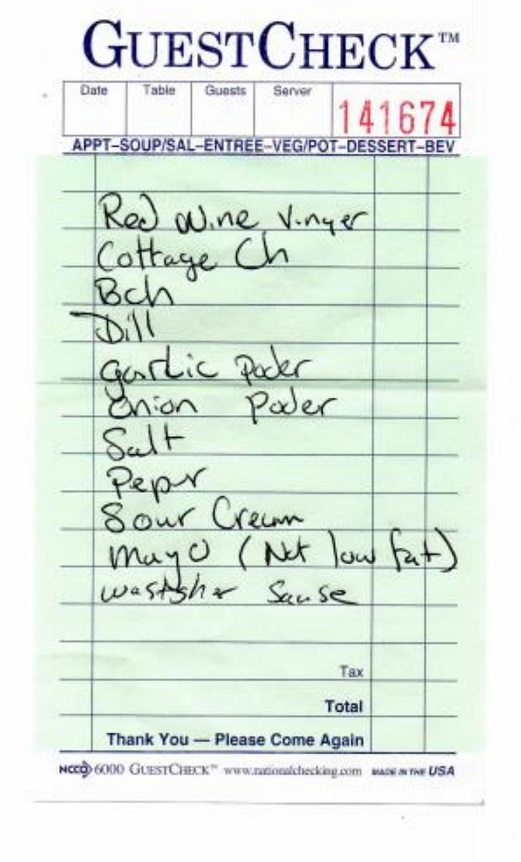 GUESTCHECK™
Date Table Guests Server
141674
APPT–SOUP/SAL–ENTREE–VEG/POT–DESSERT–BEV
Red Wine Vinyer
Cottage Ch
Bch
Dill
garlic Poder
Onion Poder
Salt
Pepr
Sour Cream
mayo (Not low fat)
wastsher Sause
Tax
Total
Thank You — Please Come Again
NCCO 6000 GUESTCHECK™ www.nationalchecking.com MADE IN THE USA